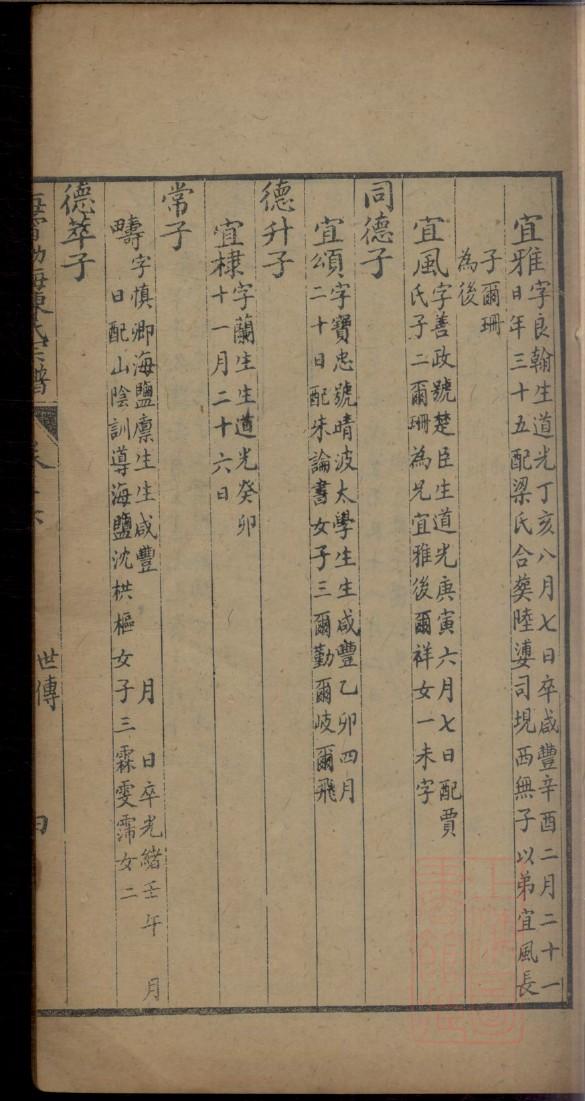 宜雅字良翰生道光丁亥八月七日卒咸豐辛酉二月二十一
日年三十五配梁氏合葬陸漊司垷西無子以弟宜風長
子爾珊
為後
宜風字善政號楚臣生道光庚寅六月七日配賈
氏子二爾珊為兄宜雅後爾祥女一未字
同德子
宜頌字寶忠號晴波太學生生咸豐乙卯四月
二十日配朱論書女子三爾勤爾岐爾飛
德升子
宜棣字蘭生生道光癸卯
十一月二十六日
常子
疇字慎卿海鹽廩生生咸豐 月 日卒光緒壬午 月
日配山陰訓導海鹽沈栱樞女子三霖雯霈女二
德萃子
海陳氏宗譜
世傳